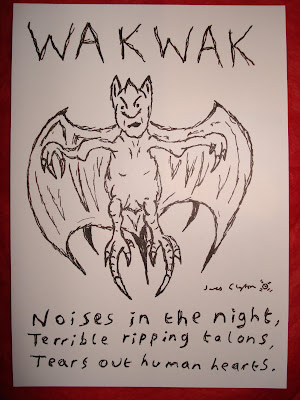 WAKWAK
James Clayton
Noises in the night,
Terrible ripping talons,
Tears out human hearts.